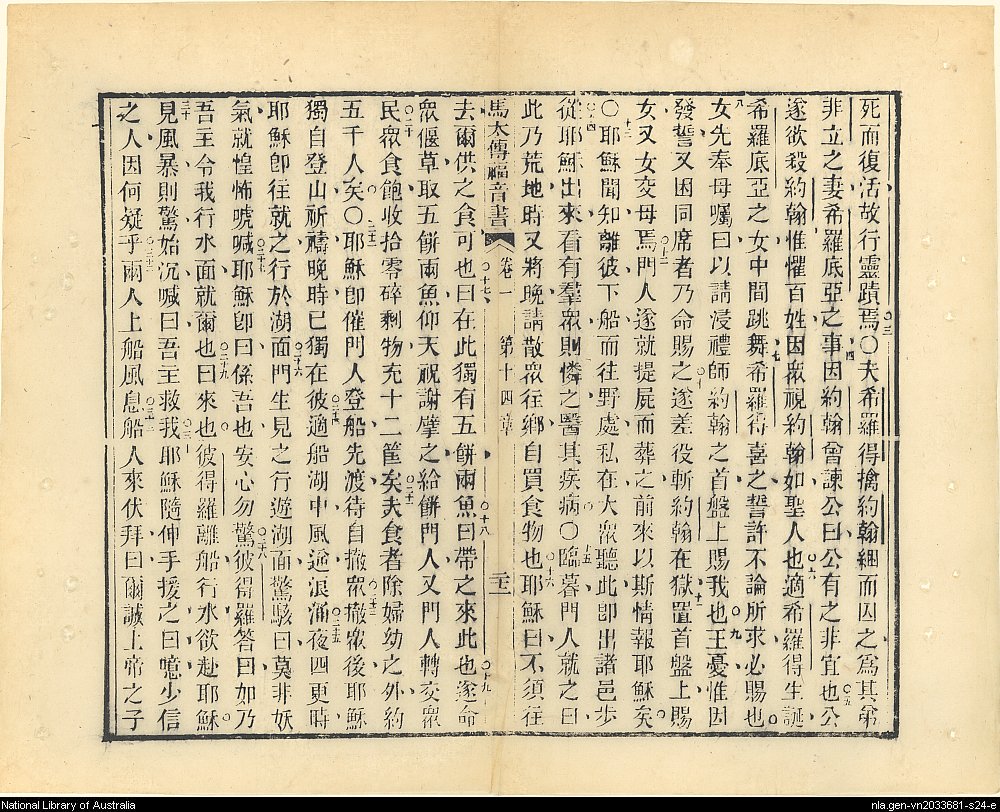 死而復活故行靈蹟焉〇夫希羅得擒約翰綑而囚之爲其弟
非立之妻希羅底亞之事因約翰曾諫公曰公有之非宜也公
遂欲殺約翰惟懼百姓因衆視約翰如聖人也適希羅得生誕
希羅底亞之女中間跳舞希羅得喜之誓許不論所求必賜也
女先奉母囑曰以請浸禮師約翰之首盤上賜我也王憂惟因
發誓又因同席者乃命賜之遂差役斬約翰在獄置首盤上賜
女又女交母焉門人遂就提屍而葬之前來以斯情報耶穌矣
〇耶穌聞知離彼下船而往野處私在大衆聽此卽出諸邑步
從耶穌出來看有羣衆則憐之醫其疾病〇臨暮門人就之曰
此乃荒地時又將晚請散衆往鄉自買食物也耶穌曰不須往
馬太傳福音書 卷一 第十四章
去爾供之食可也曰在此獨有五餅兩魚曰帶之來此也遂命
衆偃草取五餅兩魚仰天祝謝擘之給餅門人又門人轉交衆
民衆食飽收拾零碎剩物充十二筐矣夫食者除婦幼之外約
五千人矣〇耶穌卽催門人登船先渡待自撤衆撤衆後耶穌
獨自登山祈禱晚時已獨在彼適船湖中風逆浪涌夜四更時
耶穌卽往就之行於湖面門生見之行遊湖面驚駭曰莫非妖
氣就惶怖唬喊耶穌卽曰係吾也安心勿驚彼得羅答曰如乃
吾主令我行水面就爾也曰來也彼得羅離船行水欲赴耶穌
見風暴則驚始沉喊曰吾主救我耶穌隨伸手援之曰噫少信
之人因何疑乎兩人上船風息船人來伏拜曰爾誠上帝之子
National Library of Australia
nla.gen-vn2033681-s24-e